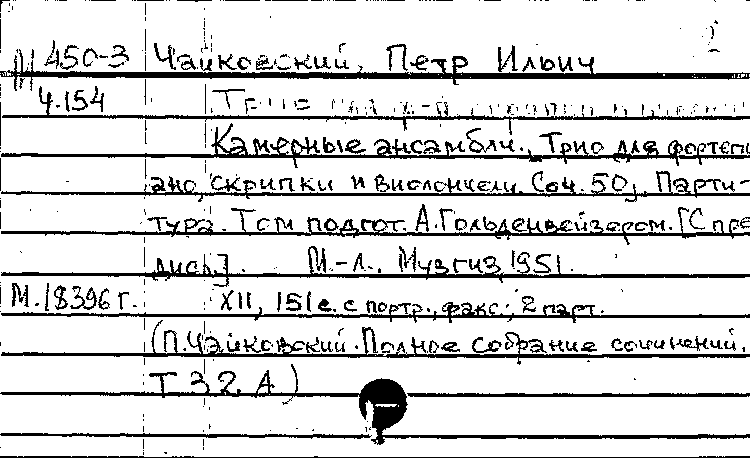 М 450-3 Чайковский, Петр Ильич
Ч.154 Трио для ф-п, скрипки и
Камерные ансамбли., Трио для фортепи
ано, скрипки и виолончели. Соч. 50,. Парти-
тура. Том подгот. А. Гольденвейзером. [С пре
дисл.]. М.-Л., Музгиз, 1951.
М.18396 г. XII, 151 с. с портр., факс.; 2 парт.
(П. Чайковский. Полное собрание сочинений.
Т 32 А)